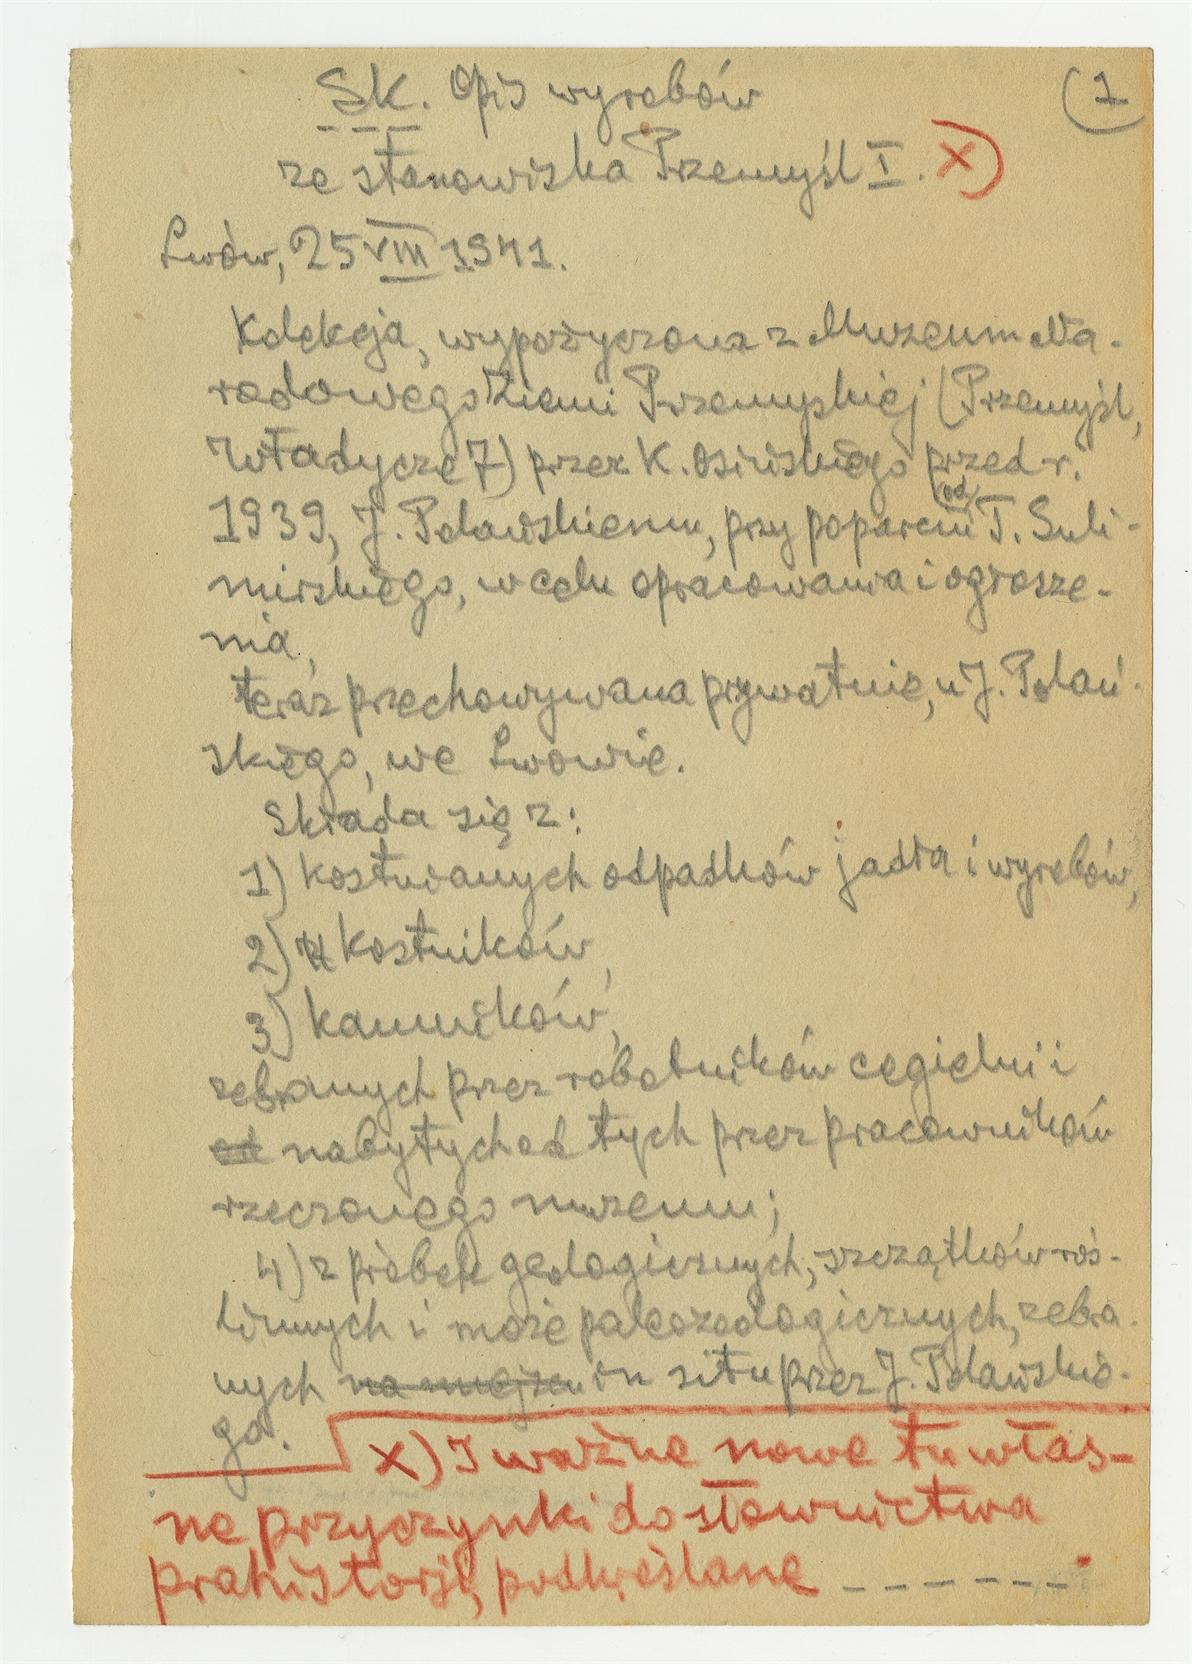 Sk. Opis wyrobów (1
ze stanowiska Przemyśl I. x)
Lwów, 25 VIII 1941.
Kolekcja, wypożyczona z Muzeum Na-
rodowego Ziemi Przemyskiej (Przemyśl,
Władycze 7) przez K. Osińskiego przed r.
(od)
1939, J. Polańskiemu, przy poparciu T. Suli-
mirskiego, w celu opracowania i ogłosze-
nia,
teraz przechowywana prywatnie, u J. Polań-
skiego, we Lwowie.
Składa się z:
1) kostnianych odpadków jadła i wyrobów,
2) kostników,
3) kamników,
zebranych przez robotników cegielni i
od nabytych od tych przez pracowników
rzeczonego muzeum;
4) z próbek geologicznych, szczątków roś-
linnych i może paleozoologicznych, zebra-
nych na miejscu in situ przez J. Polańskie-
go.
x) I ważne nowe tu włas-
ne przyczynki do słownictwa
prahistorji, podkreślane _ _ _ _ _ _ .